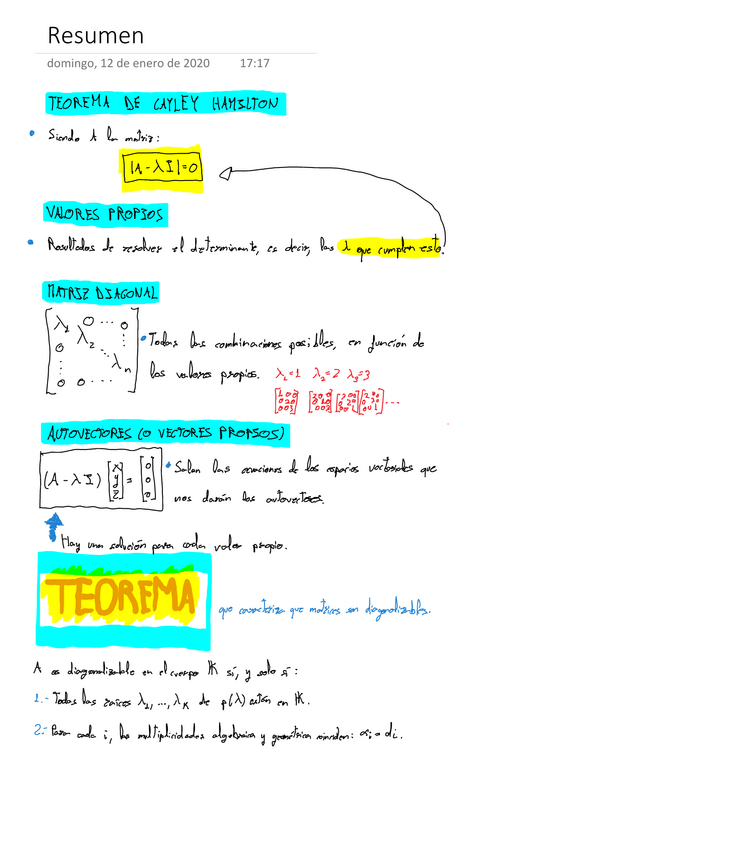 Resumen
domingo, 12 de enero de 2020 17:17
TEOREMA DE CAYLEY HAMILTON
• Siendo A la matriz:
|A - λI| = 0
VALORES PROPIOS
• Resultados de resolver el determinante, es decir, las λ que cumplen esto.
MATRIZ DIAGONAL
λ₁ 0 ... 0
0 λ₂ ⋮
⋮ ⋱ λₙ
0 0 ...
• Todas las combinaciones posibles, en función de
los valores propios. λ₁=1 λ₂=2 λ₃=3
[1 0 0 / 0 2 0 / 0 0 3] ...
AUTOVECTORES (O VECTORES PROPIOS)
(A - λI) [x y z] = [0 0 0] • Salen las ecuaciones de los espacios vectoriales que
nos darán los autovectores.
Hay una solución para cada valor propio.
TEOREMA
que caracteriza que matrices son diagonalizables.
A es diagonalizable en el cuerpo K sí, y solo sí:
1.- Todas las raíces λ₁, ..., λₖ de p(λ) están en K.
2.- Para cada i, las multiplicidades algebraica y geométrica coinciden: αᵢ = dᵢ.